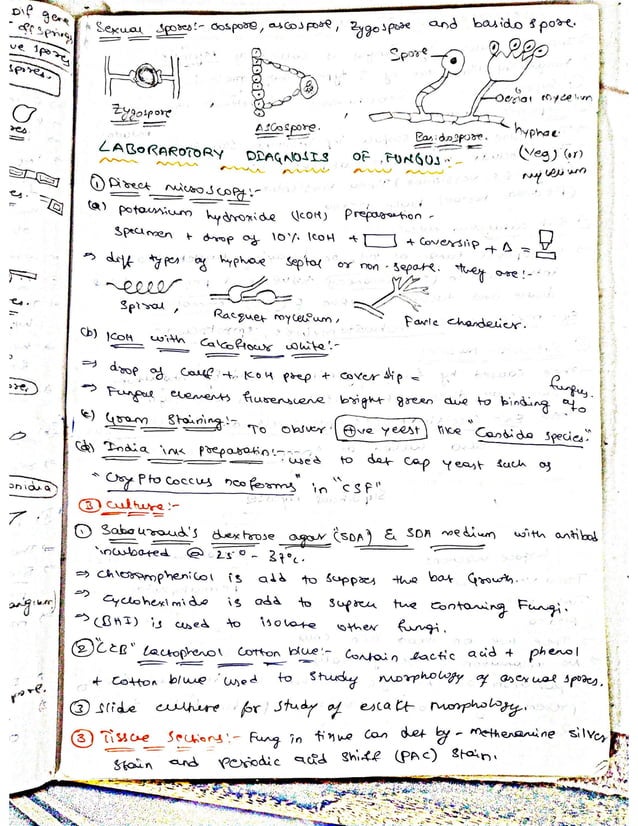 Dif gene
offsprings
ve spores
spores.
Sexual spores:- oospore, ascospore, zygospore and basidospore.
Spore
Zygospore
Ascospore.
Basidospore.
Aerial mycelium
hyphae
(veg) (or)
mycelium
LABORAROTORY DIAGNOSIS OF FUNGUS:-
① Direct microscopy:-
(a) Potassium hydroxide (KOH) Preparation -
Specimen + drop of 10% KOH + + coverslip + Δ =
⇒ diff types of hyphae septal or non-sepate. they are:-
Spiral,
Racquet mycelium,
Favic chandelier.
(b) KOH with Calcoflour white:-
⇒ drop of Calf + KOH prep + cover slip =
⇒ Fungal elements flurenscene bright green due to binding of to fungus.
(c) Gram Staining:- To obser ⊕ve yeest like "Candida species."
(d) India ink preparatin:- used to det cap yeast such as
"Cryptococcus neoforms" in "CSF"
③ Culture:-
① Sabouraud's dextrose agar "(SDA) & SDA medium with antibad
incubated @ 25° - 37°c.
⇒ Chloramphenicol is add to suppres the bat Growth.
⇒ Cycloheximide is add to supren the contaning Fungi.
⇒ (BHI) is used to isolate other fungi.
② "LCB" Lactophenol cotton blue:- Contain lactic acid + phenol
+ Cotton blue used to study morphology of asexual spores.
③ Slide culture for study of escatt morphology.
③ Tissue Sections:- Fung in tissue can det by - methenamine silver
stain and Periodic acid Shiff (PAC) Stain.